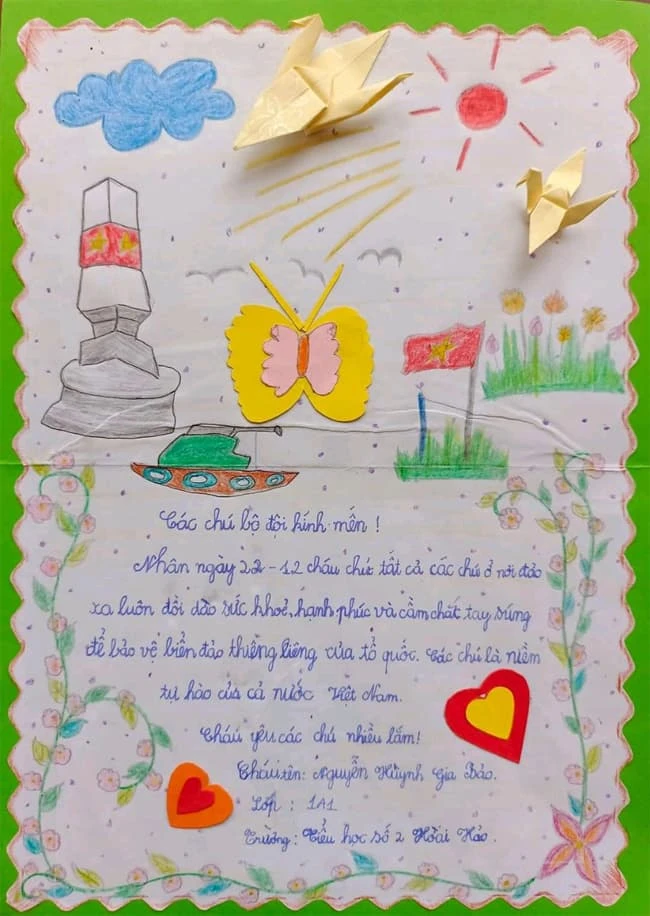 Các chú bộ đội kính mến !
Nhân ngày 22 - 12 cháu chúc tất cả các chú ở nơi đảo
xa luôn dồi dào sức khoẻ, hạnh phúc và cầm chắt tay súng
để bảo vệ biển đảo thiêng liêng của tổ quốc. Các chú là niềm
tự hào của cả nước Việt Nam.
Cháu yêu các chú nhiều lắm!
Cháu tên: Nguyễn Huỳnh Gia Bảo.
Lớp : 1A1
Trường: Tiểu học số 2 Hoài Hảo.